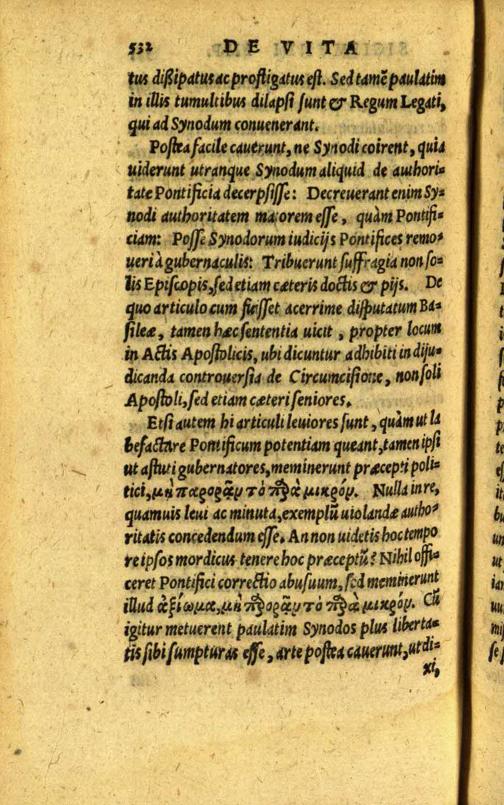 532 DE VITA
tus dißipatus ac profligatus est. Sed tamẽ paulatim
in illis tumultibus dilapsi sunt & Regum Legati,
qui ad Synodum conuenerant.
Postea facile cauerunt, ne Synodi coirent, quia
uiderunt utranque Synodum aliquid de authori-
tate Pontificia decerpsisse: Decreuerant enim Sy-
nodi authoritatem maiorem esse, quàm Pontifi-
ciam: Posse Synodorum iudicijs Pontifices remo-
ueri à gubernaculis: Tribuerunt suffragia non so-
lis Episcopis, sed etiam cæteris doctis & pijs. De
quo articulo cum fuisset acerrime disputatum Ba-
sileæ, tamen hæc sententia uicit, propter locum
in Actis Apostolicis, ubi dicuntur adhibiti in diju-
dicanda controuersia de Circumcisione, non soli
Apostoli, sed etiam cæteri seniores.
Etsi autem hi articuli leuiores sunt, quàm ut la
befactare Pontificum potentiam queant, tamen ipsi
ut astuti gubernatores, meminerunt præcepti poli-
tici, μὴ παρορᾷν τὸ παρὰ μικρόν. Nulla in re,
quamuis leui ac minuta, exemplũ uiolandæ autho-
ritatis concedendum esse. An non uidetis hoc tempo
re ipsos mordicus tenere hoc præceptũ? Nihil offi-
ceret Pontifici correctio abusuum, sed meminerunt
illud ἀξίωμα, μὴ παρορᾷν τὸ παρὰ μικρόν. Cũ
igitur metuerent paulatim Synodos plus liberta-
tis sibi sumpturas esse, arte postea cauerunt, ut di-
xi,